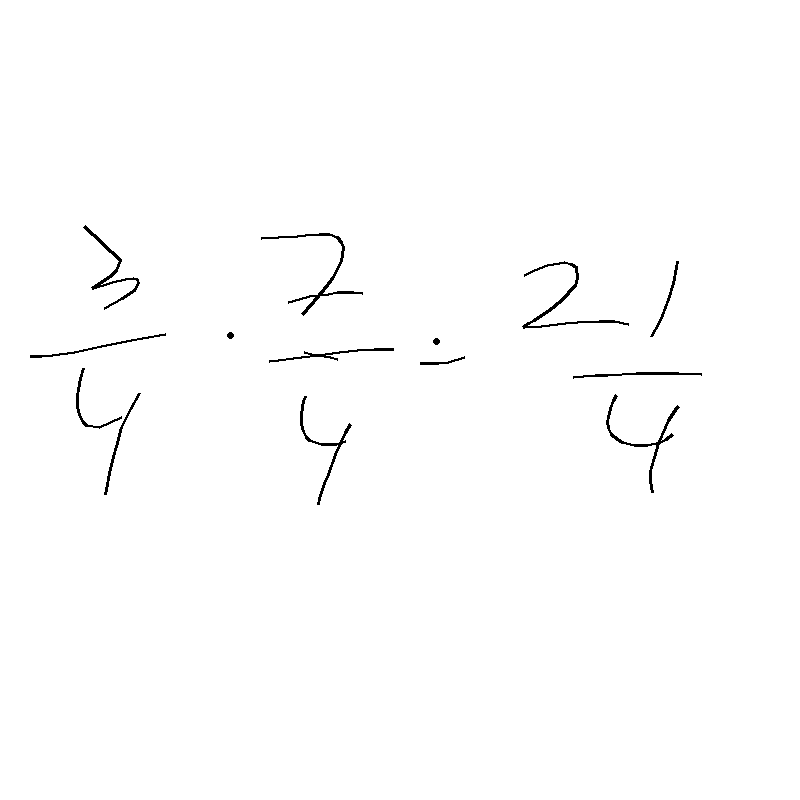 3/4 · 7/4 = 21/4